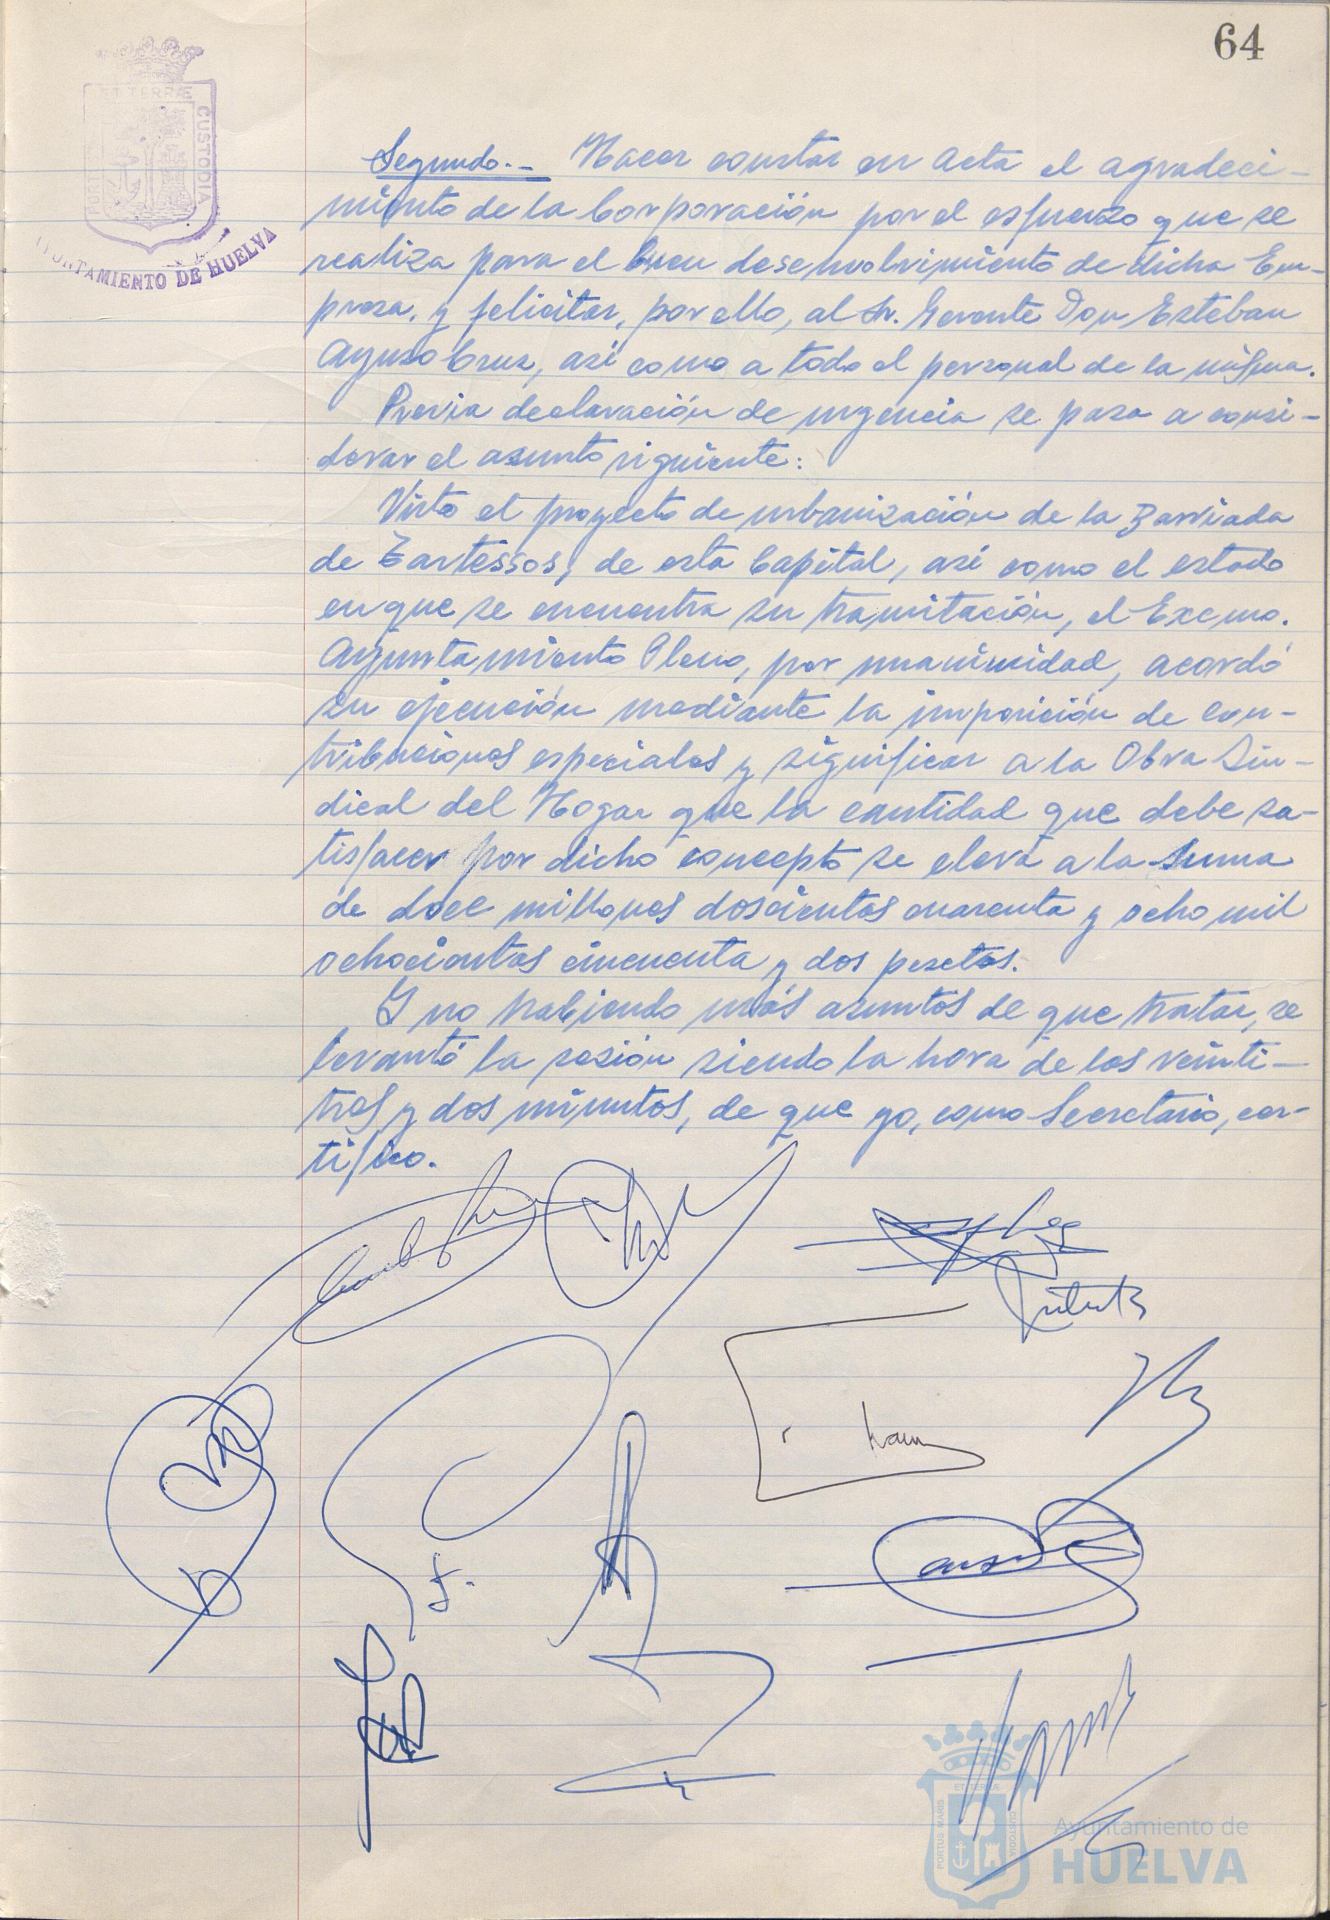 64
ET TERRÆ
CUSTODIA
AYUNTAMIENTO DE HUELVA
Segundo.- Hacer constar en Acta el agradeci-
miento de la Corporación por el esfuerzo que se
realiza para el buen desenvolvimiento de dicha Em-
presa, y felicitar, por ello, al Sr. Gerente Don Esteban
Ayuso Cruz, así como a todo el personal de la misma.
Previa declaración de urgencia se pasa a consi-
derar el asunto siguiente:
Visto el proyecto de urbanización de la Barriada
de Tartessos, de esta Capital, así como el estado
en que se encuentra su tramitación, el Excmo.
Ayuntamiento Pleno, por unanimidad, acordó
su ejecución mediante la imposición de con-
tribuciones especiales y significar a la Obra Sin-
dical del Hogar que la cantidad que debe sa-
tisfacer por dicho concepto se eleva a la suma
de doce millones doscientas cuarenta y ocho mil
ochocientas cincuenta y dos pesetas.
Y no habiendo más asuntos de que tratar, se
levantó la sesión siendo la hora de las veinti-
tres y dos minutos, de que yo, como Secretario, cer-
tifico.
ET TERRA
PORTUS MARIS
CUSTODIA
Ayuntamiento de
HUELVA